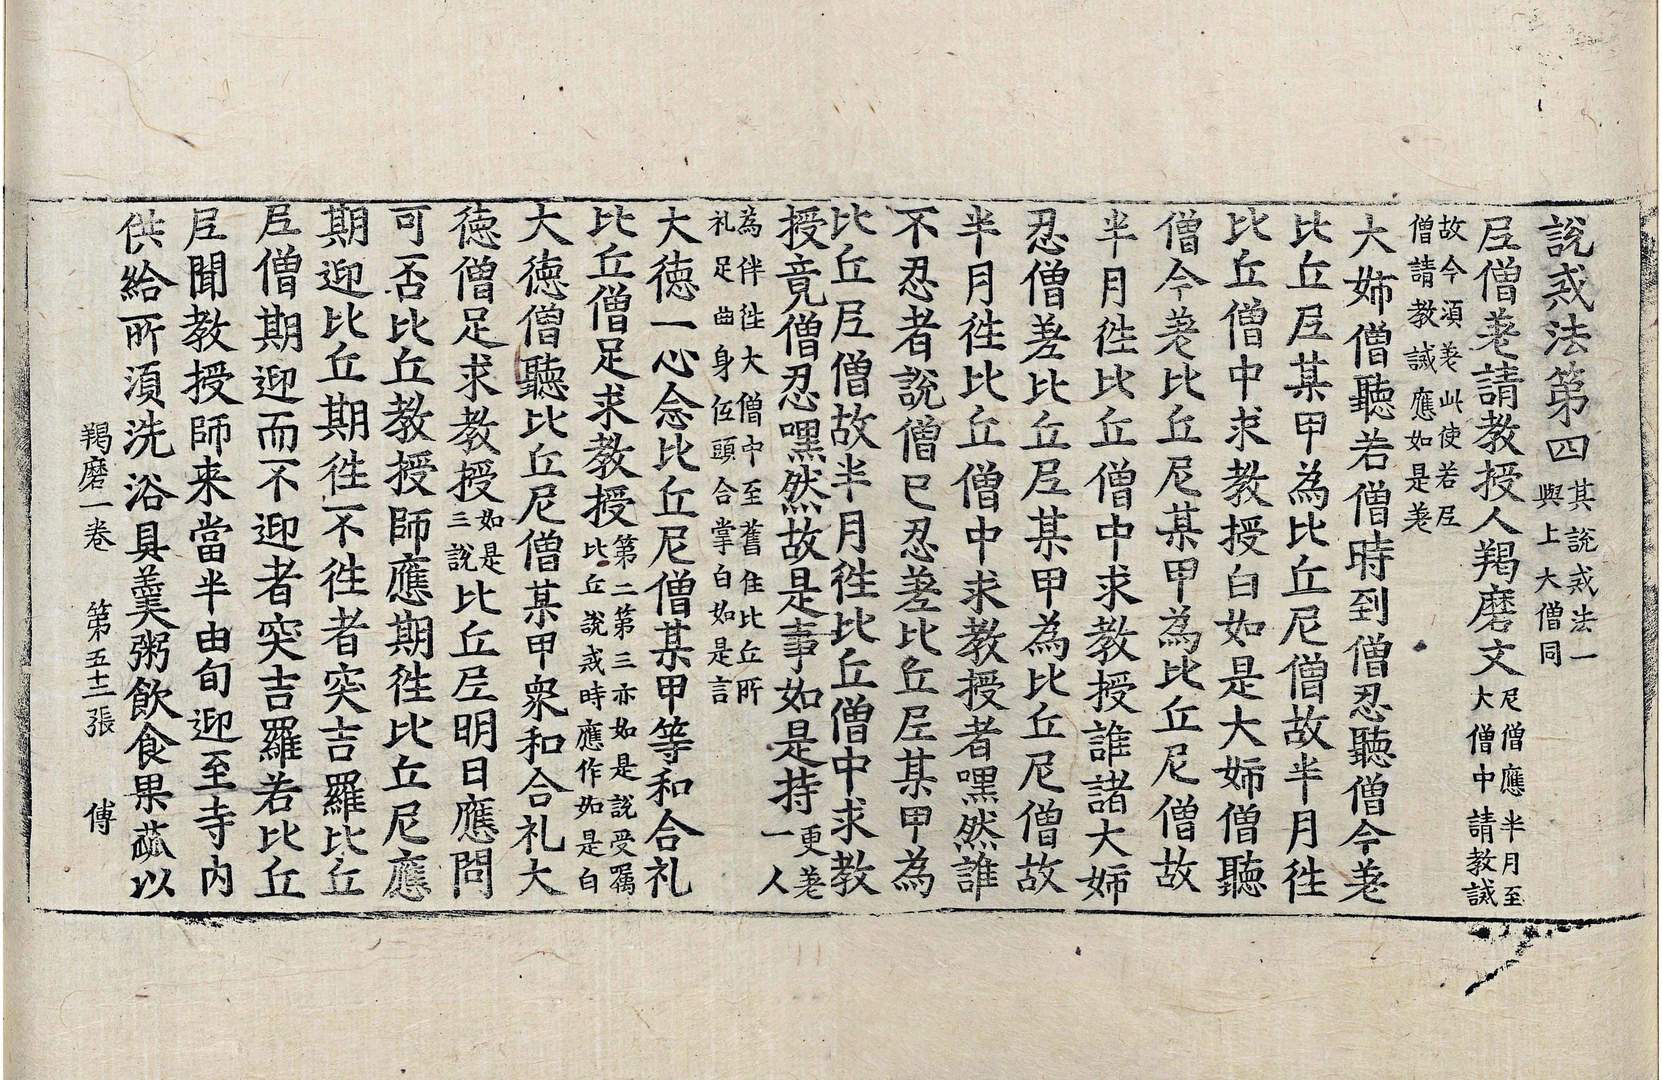 說戒法第四其說戒法一與上大僧同
尼僧差請教授人羯磨文尼僧應半月至大僧中請教誡
故今湏差此使若尼僧請教誡應如是差
大姉僧聽若僧時到僧忍聽僧今差
比丘尼某甲為比丘尼僧故半月徃
比丘僧中求教授白如是大姉僧聽
僧今差比丘尼某甲為比丘尼僧故
半月徃比丘僧中求教授誰諸大姉
忍僧差比丘尼某甲為比丘尼僧故
半月徃比丘僧中求教授者嘿然誰
不忍者說僧已忍差比丘尼某甲為
比丘尼僧故半月徃比丘僧中求教
授竟僧忍嘿然故是事如是持更差一人
為伴徃大僧中至舊住比丘所礼足曲身伍頭合掌白如是言
大德一心念比丘尼僧某甲等和合礼
比丘僧足求教授第二第三亦如是說受囑比丘說戒時應作如是白
大德僧聽比丘尼僧某甲衆和合礼大
德僧足求教授如是三說比丘尼明日應問
可否比丘教授師應期徃比丘尼應
期迎比丘期徃不徃者突吉羅比丘
尼僧期迎而不迎者突吉羅若比丘
尼聞教授師来當半由旬迎至寺內
供給所湏洗浴具羹粥飲食果蓏以
羯磨一卷　第五十二張　傅